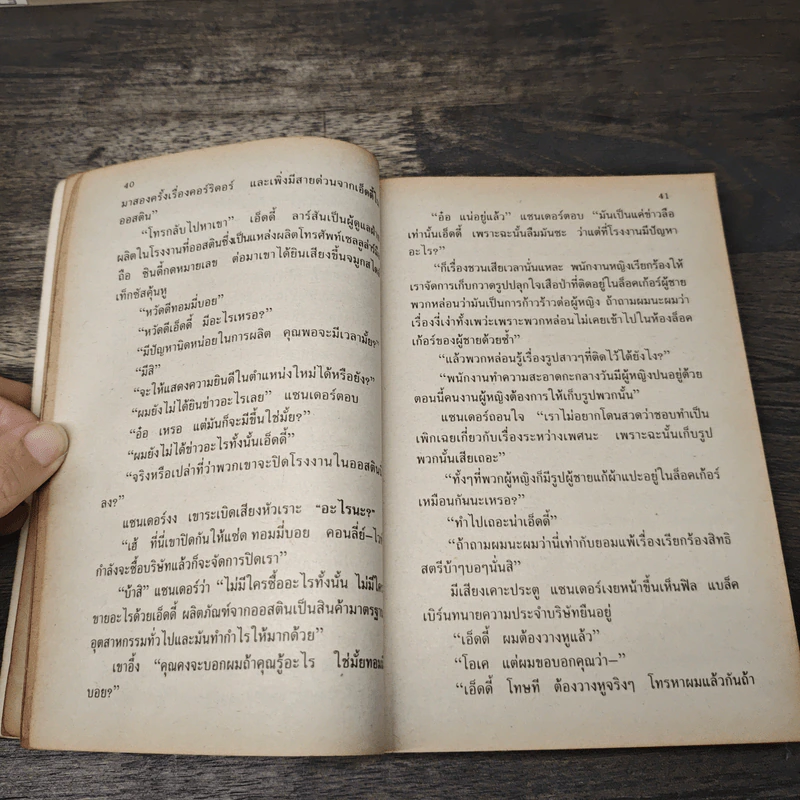 40
มาสองครั้งเรื่องคอร์ริดอร์ และเพิ่งมีสายด่วนจากเอ็ดดี้
ออสติน”
“โทรกลับไปหาเขา” เอ็ดดี้ ลาร์สันเป็นผู้ดูแล
ผลิตในโรงงานที่ออสตินซึ่งเป็นแหล่งผลิตโทรศัพท์เซลลูล่าร์
ถือ ซินดี้กดหมายเลข ต่อมาเขาได้ยินเสียงขึ้นจมูก
เท็กซัสคุ้นหู
“หวัดดีทอมมี่บอย”
“หวัดดีเอ็ดดี้ มีอะไรเหรอ?”
“มีปัญหานิดหน่อยในการผลิต คุณพอจะมีเวลามั้ย?”
“มีสิ”
“จะให้แสดงความยินดีในตำแหน่งใหม่ได้หรือยัง?”
“ผมยังไม่ได้ยินข่าวอะไรเลย” แซนเดอร์ตอบ
“อ๋อ เหรอ แต่มันก็จะมีขึ้นใช่มั้ย?”
“ผมยังไม่ได้ข่าวอะไรทั้งนั้นเอ็ดดี้”
“จริงหรือเปล่าที่ว่าพวกเขาจะปิดโรงงานในออสติน
ลง?”
แซนเดอร์งง เขาระเบิดเสียงหัวเราะ “อะไรนะ?”
“เฮ้ ที่นี่เขาปิดกันให้แซ่ด ทอมมี่บอย คอนลี่ย์–ไวท์
กำลังจะซื้อบริษัทแล้วก็จะจัดการปิดเรา”
“บ้าสิ” แซนเดอร์ว่า “ไม่มีใครซื้ออะไรทั้งนั้น ไม่มีใคร
ขายอะไรด้วยเอ็ดดี้ ผลิตภัณฑ์จากออสตินเป็นสินค้ามาตรฐาน
อุตสาหกรรมทั่วไปและมันทำกำไรให้มากด้วย”
เขาอึ้ง “คุณคงจะบอกผมถ้าคุณรู้อะไร ใช่มั้ยทอมมี่
บอย?”
41
“อ๋อ แน่อยู่แล้ว” แซนเดอร์ตอบ “มันเป็นแค่ข่าวลือ
เท่านั้นเอ็ดดี้ เพราะฉะนั้นลืมมันซะ ว่าแต่ที่โรงงานมีปัญหา
อะไร?”
“ก็เรื่องชวนเสียเวลานั่นแหละ พนักงานหญิงเรียกร้องให้
เราจัดการเก็บกวาดรูปปลุกใจเสือป่าที่ติดอยู่ในล็อคเก้อร์ผู้ชาย
พวกหล่อนว่ามันเป็นการก้าวร้าวต่อผู้หญิง ถ้าถามผมนะผมว่า
เรื่องงี่เง่าทั้งเพว่ะเพราะพวกหล่อนไม่เคยเข้าไปในห้องล็อค
เก้อร์ของผู้ชายด้วยซ้ำ”
“แล้วพวกหล่อนรู้เรื่องรูปสาวๆที่ติดไว้ได้ยังไง?”
“พนักงานทำความสะอาดกะกลางวันมีผู้หญิงปนอยู่ด้วย
ตอนนี้คนงานผู้หญิงต้องการให้เก็บรูปพวกนั้น”
แซนเดอร์ถอนใจ “เราไม่อยากโดนสวดว่าชอบทำเป็น
เพิกเฉยเกี่ยวกับเรื่องระหว่างเพศนะ เพราะฉะนั้นเก็บรูป
พวกนั้นเสียเถอะ”
“ทั้งๆที่พวกผู้หญิงก็มีรูปผู้ชายแก้ผ้าแปะอยู่ในล็อคเก้อร์
เหมือนกันนะเหรอ?”
“ทำไปเถอะน่าเอ็ดดี้”
“ถ้าถามผมนะผมว่านี่เท่ากับยอมแพ้เรื่องเรียกร้องสิทธิ
สตรีบ้าๆบอๆนั่นสิ”
มีเสียงเคาะประตู แซนเดอร์เงยหน้าขึ้นเห็นฟิล แบล็ค
เบิร์นทนายความประจำบริษัทยืนอยู่
“เอ็ดดี้ ผมต้องวางหูแล้ว”
“โอเค แต่ผมขอบอกคุณว่า–”
“เอ็ดดี้ โทษที ต้องวางหูจริงๆ โทรหาผมแล้วกันถ้า